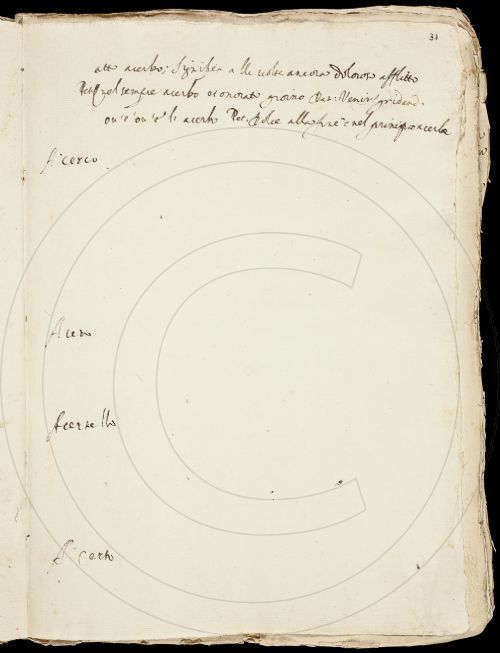 31
atto acerbo; Significa alle volte ancora doloroso afflitto
Pet. nel sempre acerbo et onorato giorno Dan: Venir gridend.
ou'è ou'è lo acerbo Pet. Dolce alla fine e nel principio acerba
A cerco
Acero
Acerello
A certo